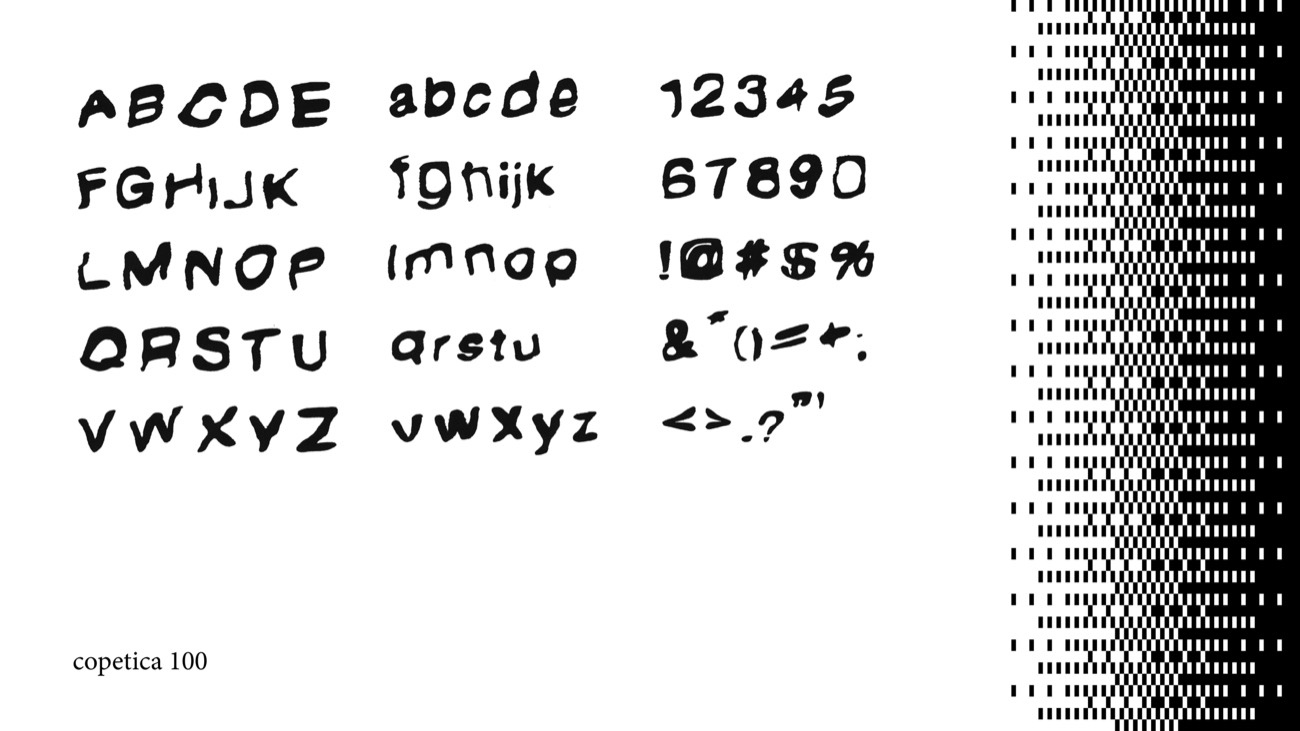 A B C D E
F G H I J K
L M N O P
Q R S T U
V W X Y Z
a b c d e
f g h i j k
l m n o p
q r s t u
v w x y z
1 2 3 4 5
6 7 8 9 0
! @ # $ %
& * ( ) = + :
< > . ? " '
copetica 100